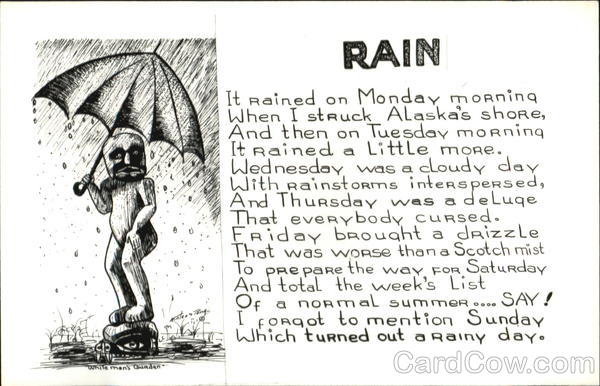 RAIN
It rained on Monday morning
When I struck Alaska's shore,
And then on Tuesday morning
It rained a Little more.
Wednesday was a cloudy day
With rainstorms interspersed,
And Thursday was a deluge
That everybody cursed.
Friday brought a drizzle
That was worse than a Scotch mist
To prepare the way for Saturday
And total the week's List
Of a normal summer .... SAY!
I forgot to mention Sunday
Which turned out a rainy day.
White man's Burden
CardCow.com